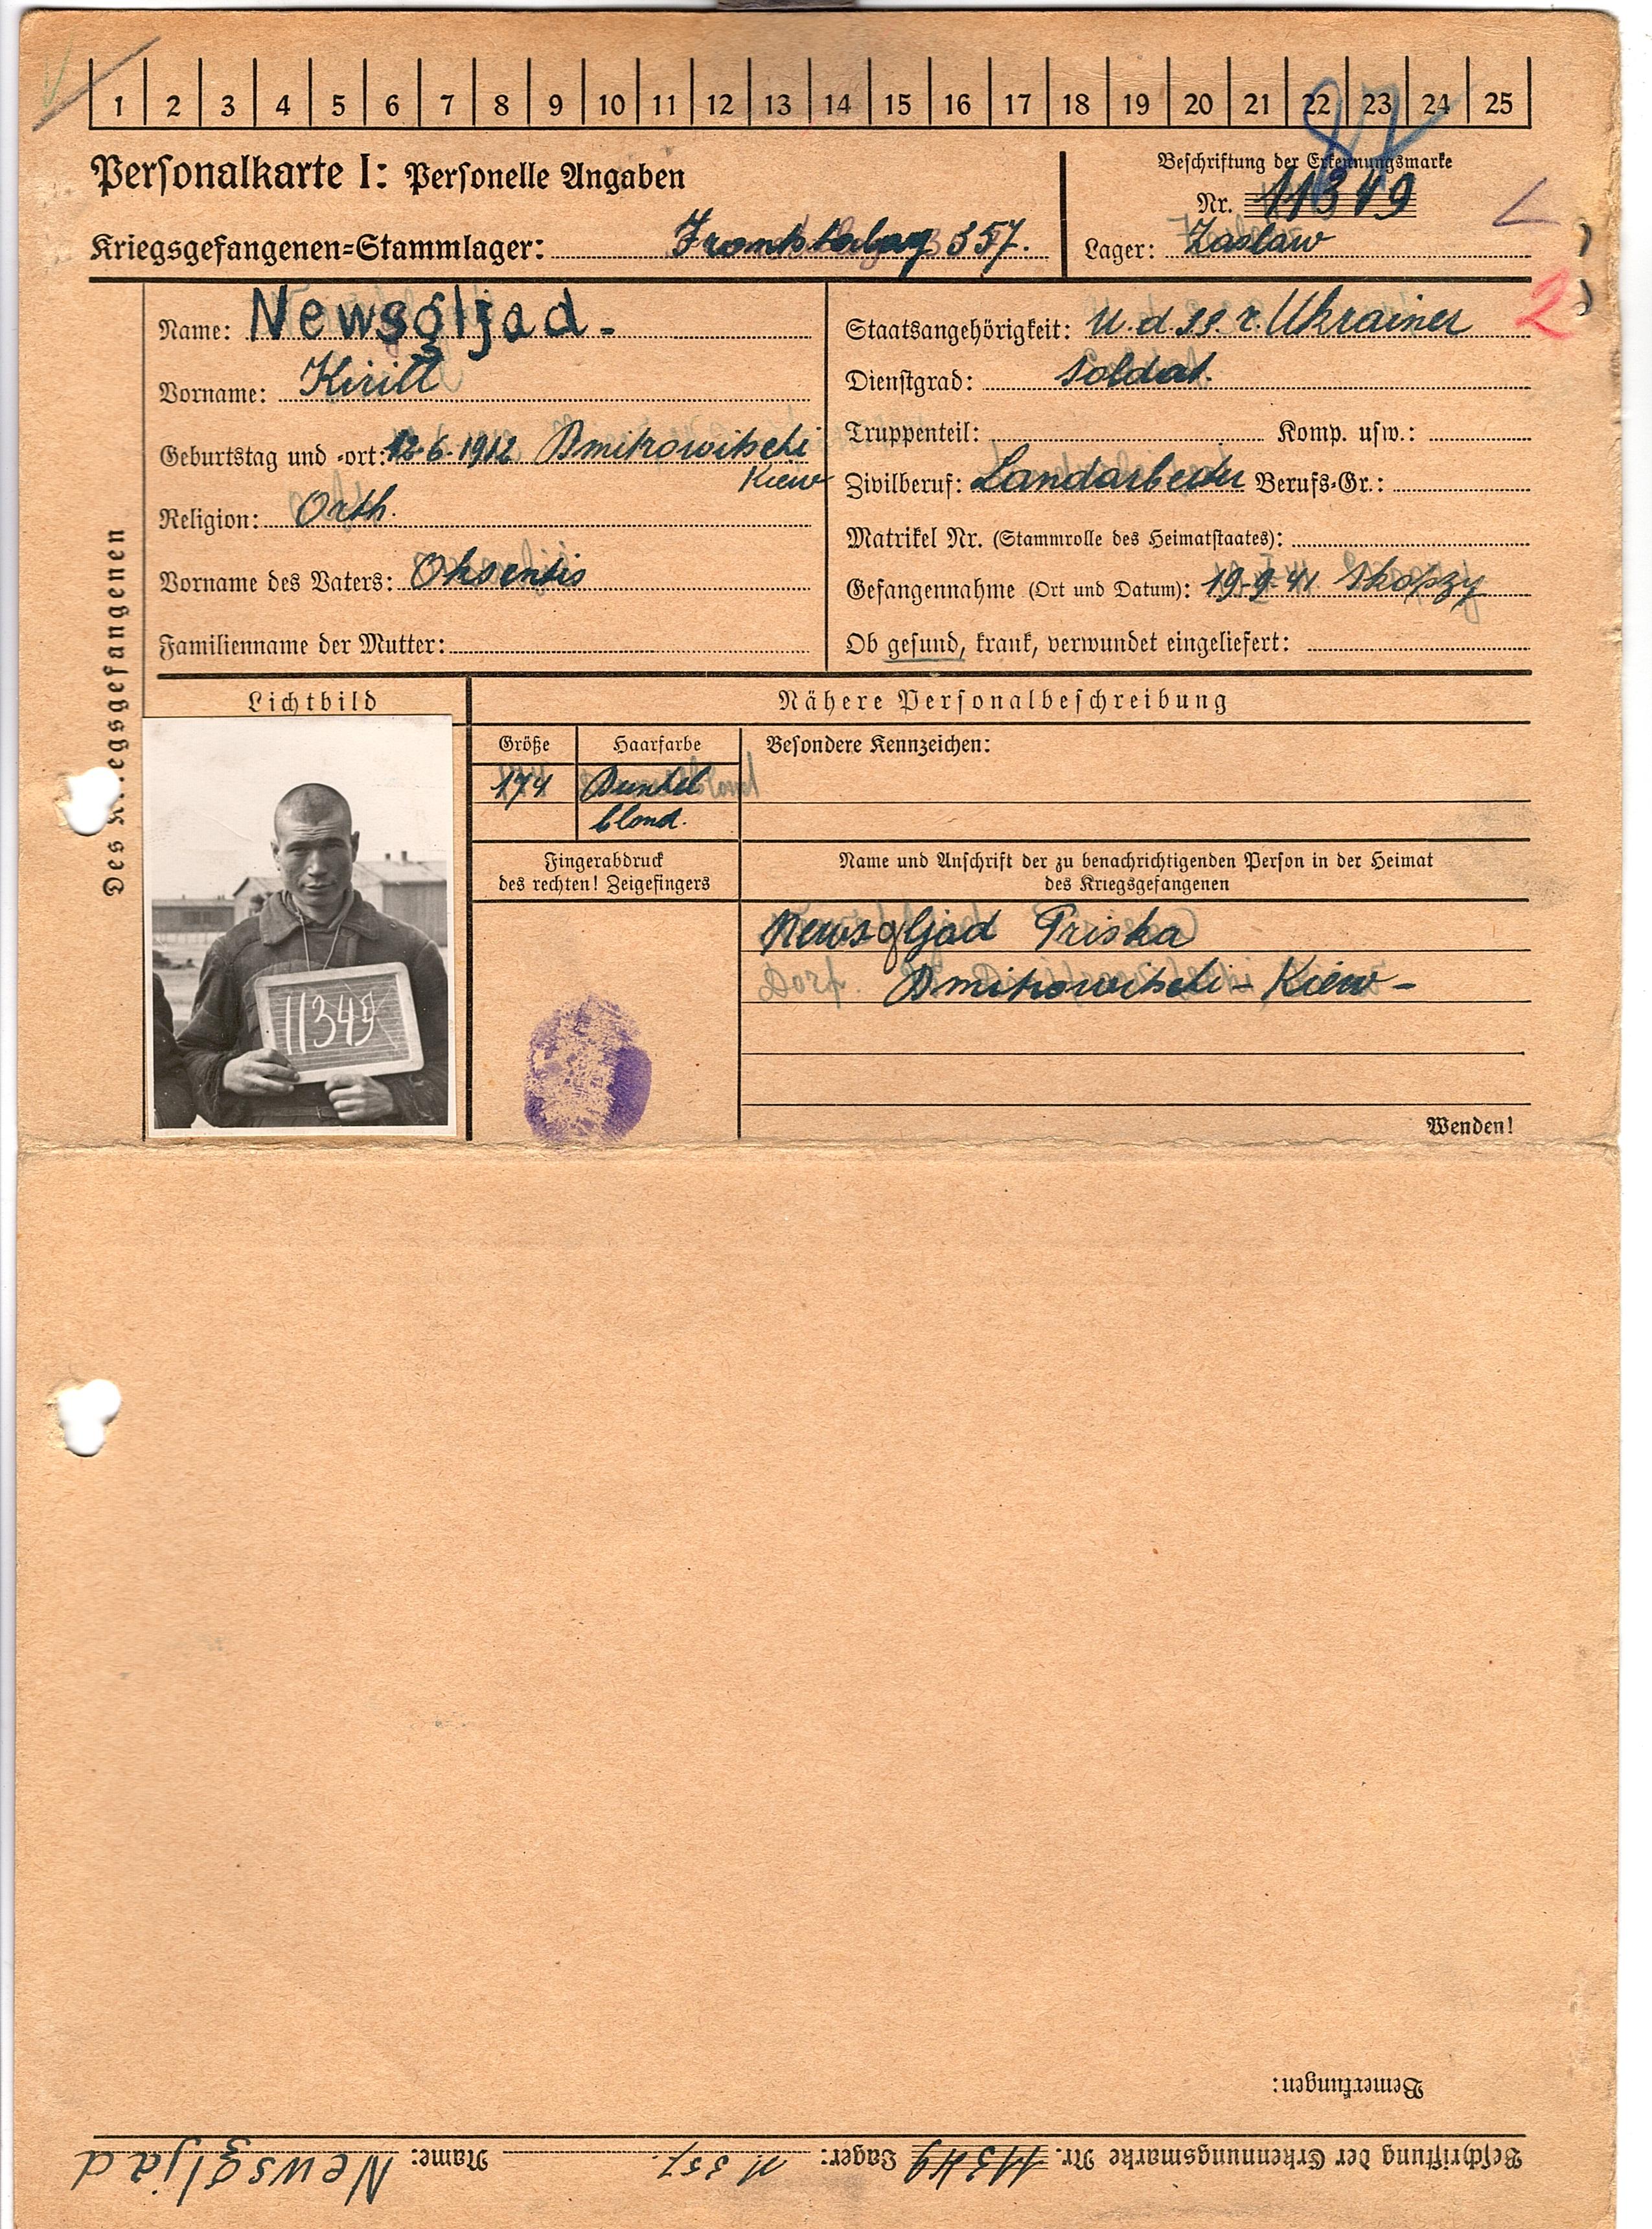 1 2 3 4 5 6 7 8 9 10 11 12 13 14 15 16 17 18 19 20 21 22 23 24 25
87
Personalkarte I: Personelle Angaben
Beschriftung der Erkennungsmarke
Nr. 11349
Kriegsgefangenen=Stammlager: Frontstalag 357.
Lager: Zaslaw
2
Des Kriegsgefangenen
Name: Newsgljad-
Vorname: Kirill
Geburtstag und -ort: 12-6-1912 Dmitrowitschi
Kiew
Religion: Orth.
Vorname des Vaters: Oksentis
Familienname der Mutter:
Staatsangehörigkeit: U.d.SS.r. Ukrainer
Dienstgrad: Soldat.
Truppenteil: Komp. usw.:
Zivilberuf: Landarbeiter Berufs-Gr.:
Matrikel Nr. (Stammrolle des Heimatstaates):
Gefangennahme (Ort und Datum): 19-9-41 Skopzy
Ob gesund, krank, verwundet eingeliefert:
Lichtbild
11349
Nähere Personalbeschreibung
Größe
174
Haarfarbe
Dunkel
blond.
Besondere Kennzeichen:
Fingerabdruck
des rechten! Zeigefingers
Name und Anschrift der zu benachrichtigenden Person in der Heimat
des Kriegsgefangenen
Newsgljad Priska
Dmitrowitschi - Kiew -
Wenden!
Bemerkungen:
Beschriftung der Erkennungsmarke Nr. 11349 Lager: 357. Name: Newsgljad